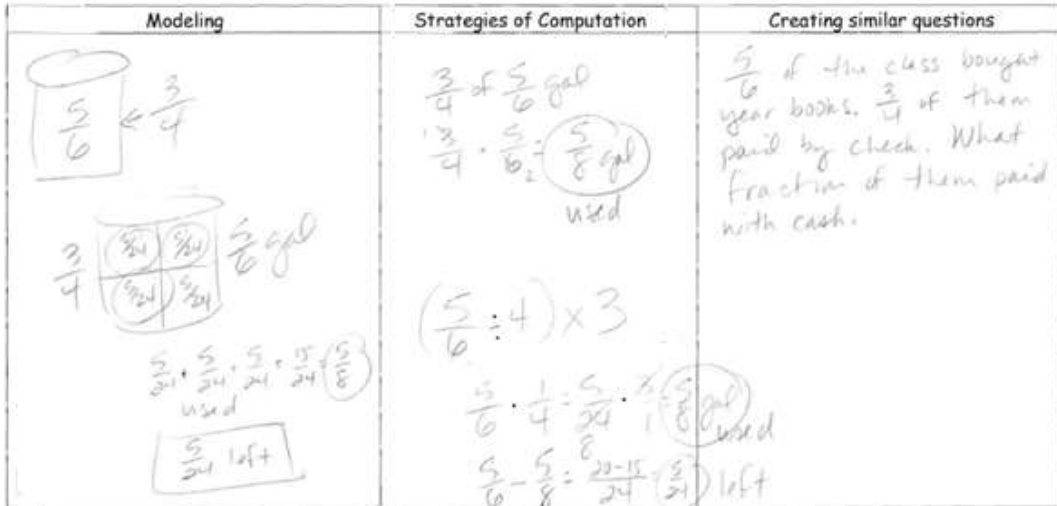 Modeling
5/6 ← 3/4
3/4 5/24 5/24 5/6 gal
5/24 5/24
5/24 · 5/24 · 5/24 · 15/24 = 5/8
used
5/24 left
Strategies of Computation
3/4 of 5/6 gal
3/4 · 5/6 = 5/8 gal
1 2
used
(5/6 ÷ 4) × 3
5/6 · 1/4 = 5/24 · 3/1 = 5/8 gal
8 used
5/6 - 5/8 = 20-15/24 = 5/24 left
Creating similar questions
5/6 of the class bought
year books. 3/4 of them
paid by check. What
fraction of them paid
with cash.